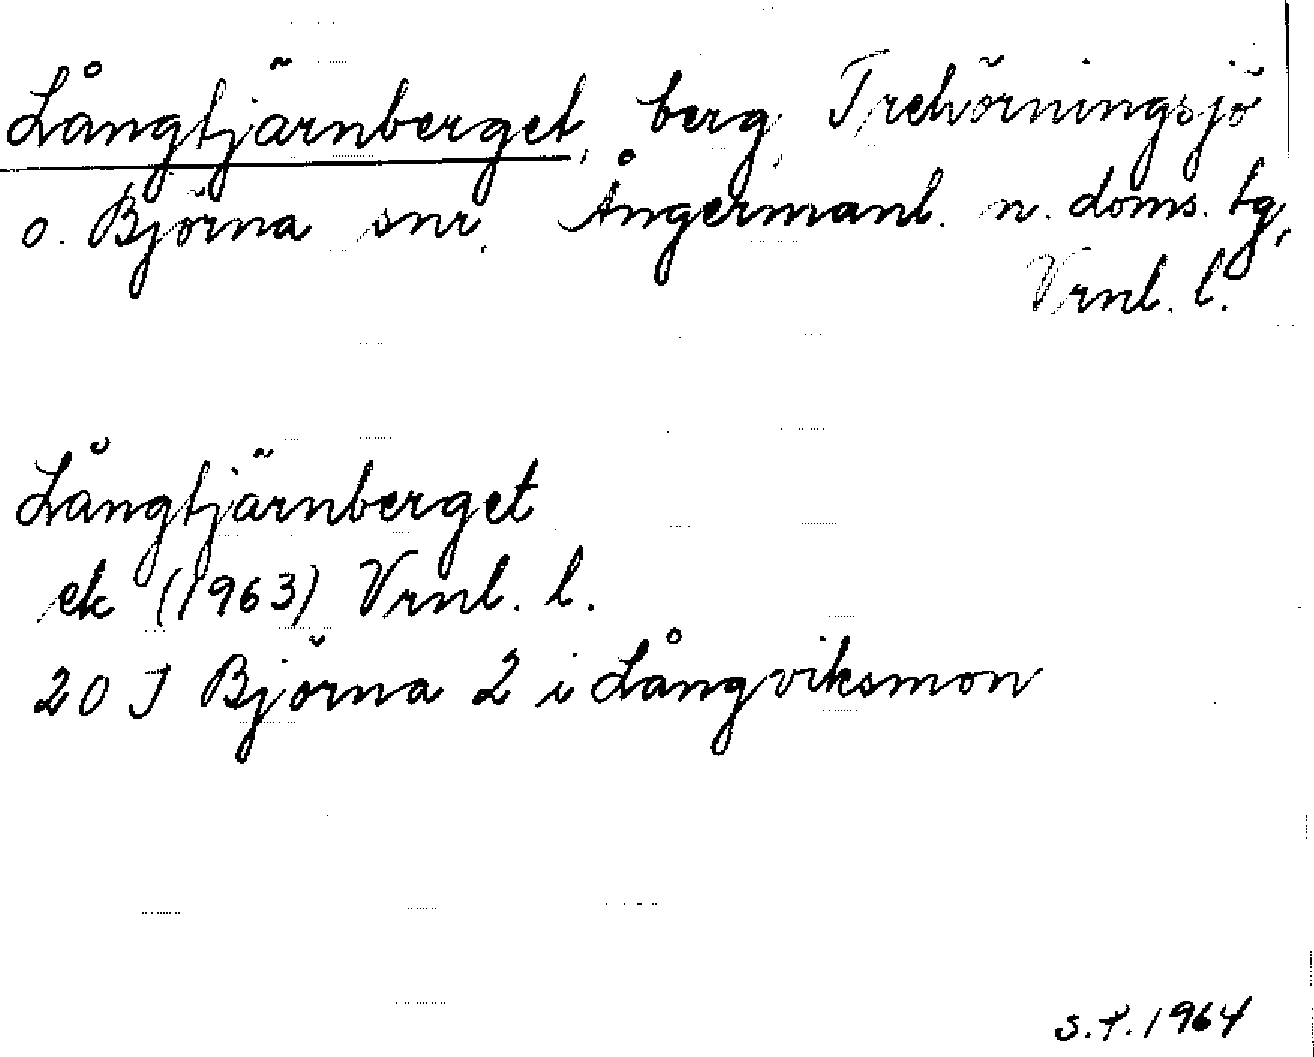 Långtjärnberget, berg, Trehörningsjö
o. Björna snr, Ångermanl. n. doms. tg,
Vrnl. l.
Långtjärnberget
ek (1963) Vrnl. l.
20 J Björna 2 i Långviksmon
S.F. 1964